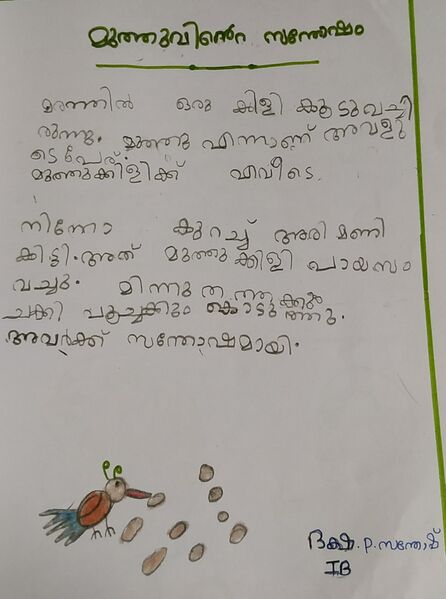 മുത്തുവിൻെറ സന്തോഷം
മരത്തിൽ ഒരു കിളി കൂടുവച്ചി
രുന്നു. മുത്തു എന്നാണ് അവളു
ടെ പേര്.
മുത്തുക്കിളിക്ക് എവിടെ
നിന്നോ കുറച്ച് അരിമണി
കിട്ടി. അത് മുത്തുക്കിളി പായസം
വച്ചു. മിന്നു തത്തക്കും
ചക്കി പൂച്ചക്കും കൊടുത്തു.
അവർക്ക് സന്തോഷമായി.
ദക്ഷ. P. സന്തോഷ്
IB